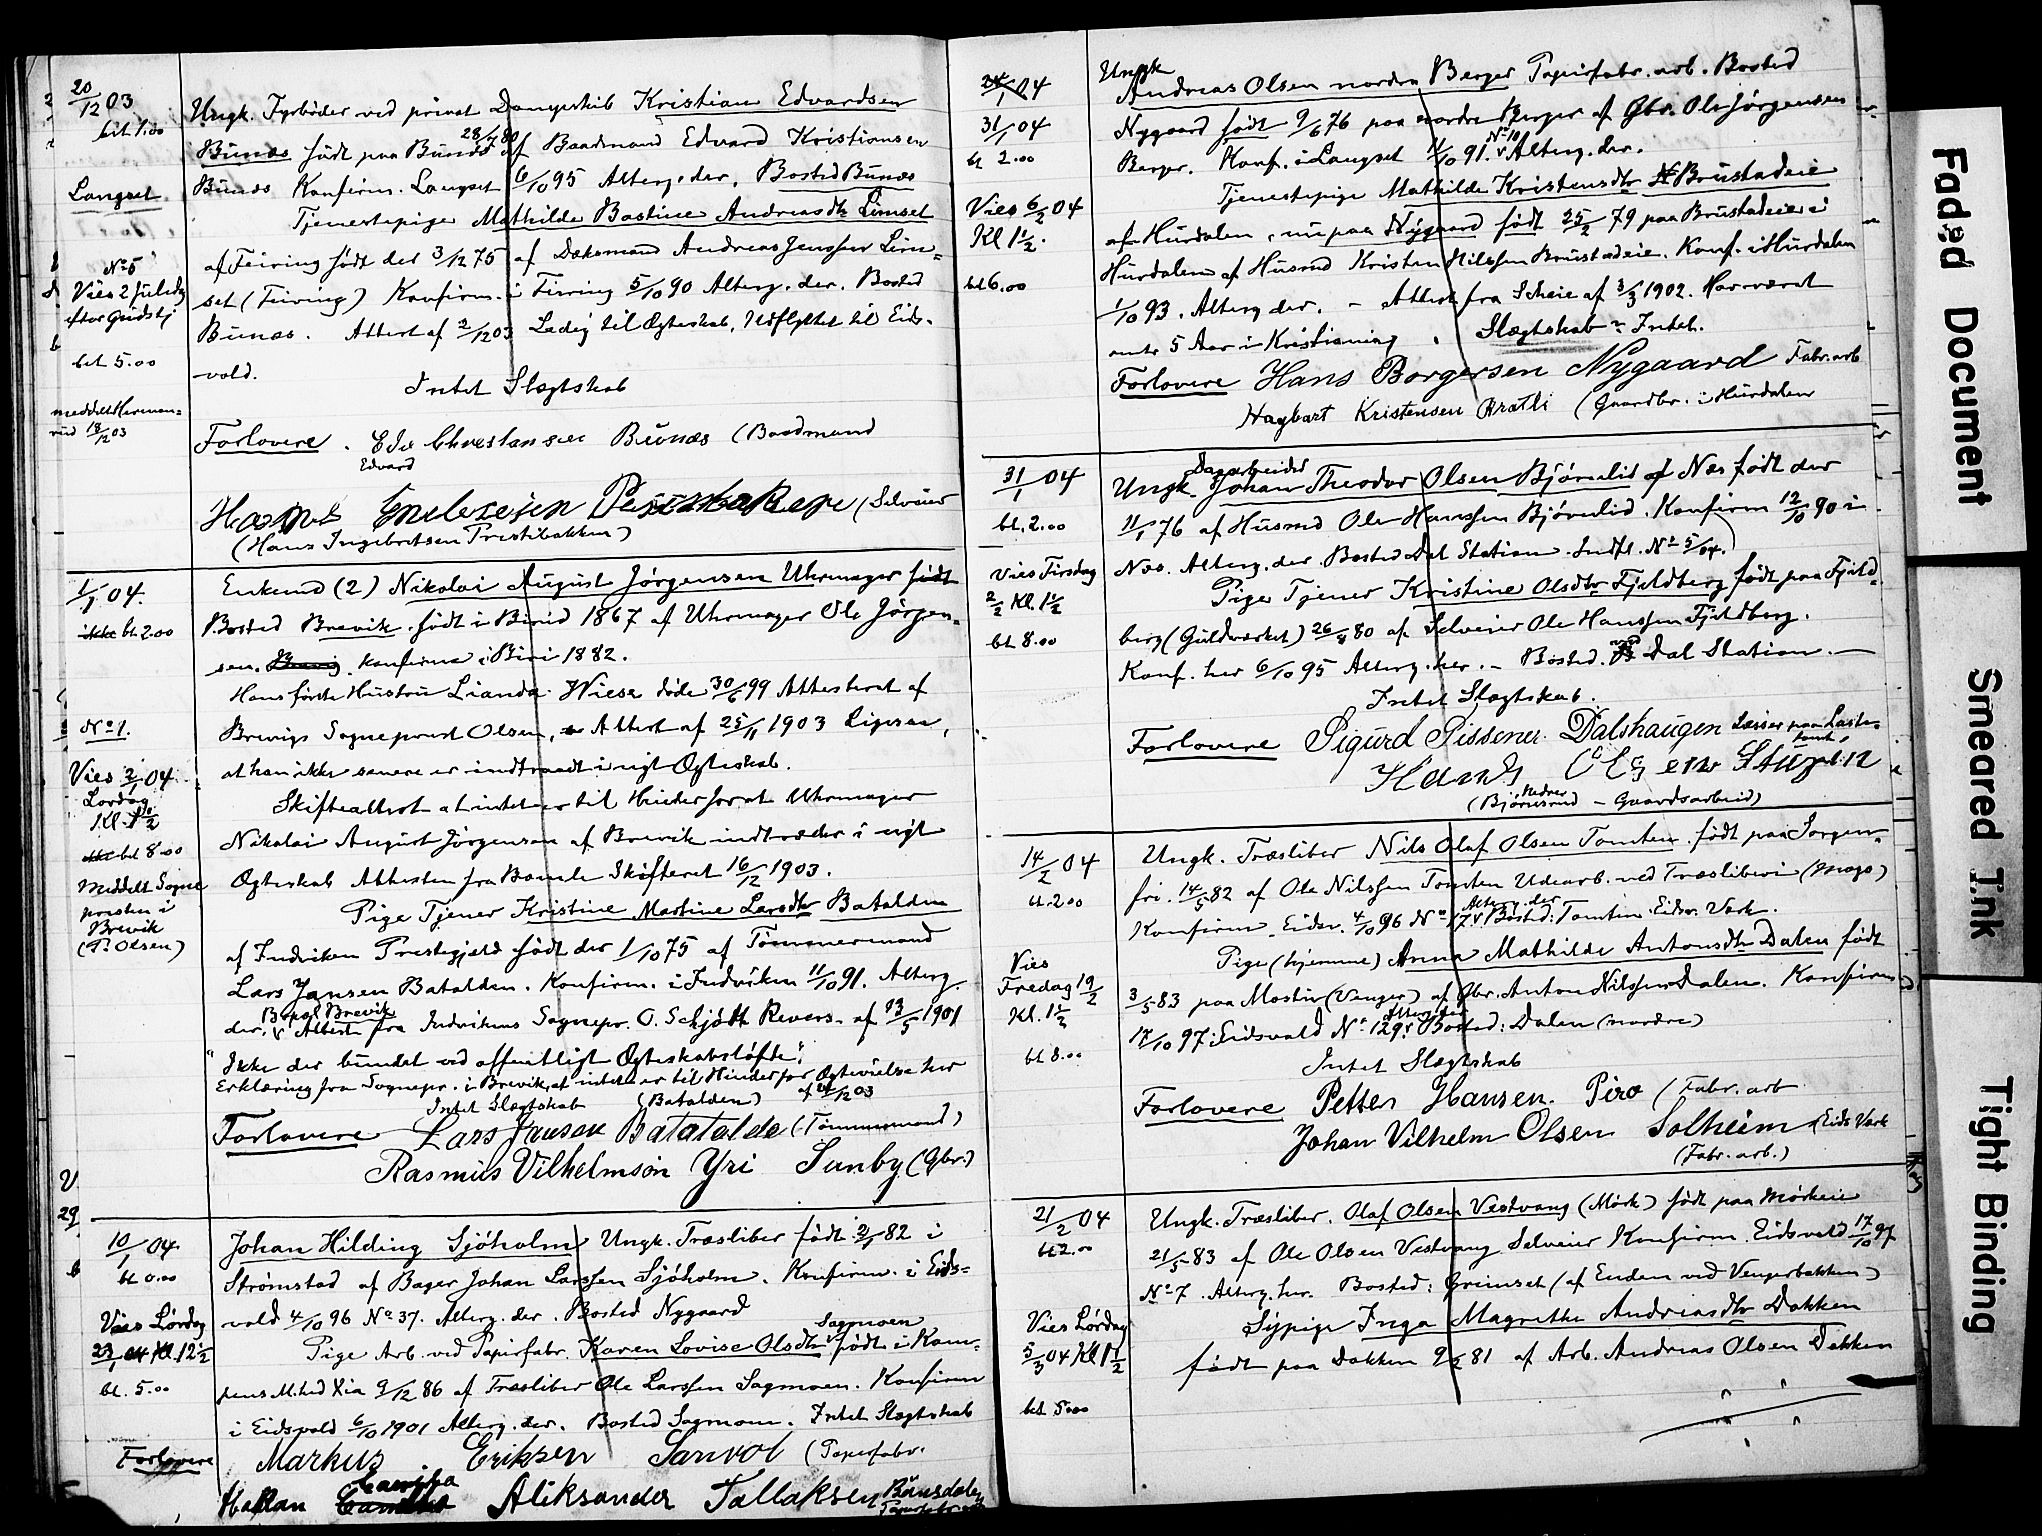 20/12 03
bet 1.00
Langset
No 5
Vies 2 Juledag
efter Gudstj
bet 5.00
meddelt Herman-
rud 18/12 03
Ungk. Fyrböder ved privat Dampskib Kristian Edvardsen
Bunæs født paa Bunæs 28/7 80 af Baadmand Edvard Kristiansen
Bunæs Konfirm. Langset 6/10 95 Alterg. der. Bosted Bunæs
Tjenestepige Mathilde Bastine Andreasdtr Limset
af Feiring født der 3/12 75 af Dæksmand Andreas Jenssen Lim-
set (Feiring) Konfirm. i Feiring 5/10 90 Alterg. der. Bosted
Bunæs. Attest af 2/12 03 Ledig til Ægteskab, Udflyttet til Eids-
vold.
Intet Slægtskab
Forlovere. Edv Chrestansen Bunæs (Baadmand
Edvard
Hans Engebresen Presterbakken (Selveier
(Hans Ingebretsen Prestibakken)
1/1 04.
ikke bt. 2.00
No 1.
Vies 2/1 04
Lördag
Kl. 1 1/2
bet 8.00
Meddelt Sogne
presten i
Brevik
(P. Olsen)
Enkemd (2) Nikolai August Jörgensen Uhrmager født
Bosted Brevik. født i Birid 1867 af Uhrmager Ole Jörgen-
sen. konfirm. i Biri 1882.
Hans förste Hustru Lianda Wiese döde 30/6 99 Attesteret af
Brevigs Sogneprest Olsen, Attest af 25/11 1903 Ligesaa,
at han ikke senere er indtraadt i nyt Ægteskab.
Skifteattest at intet er til Hinder for at Uhrmager
Nikolai August Jörgensen af Brevik indtræder i nyt
Ægteskab Attesten fra Bamle Skifteret 16/12 1903.
Pige Tjener Kristine Martine Larsdtr Batalden
af Indviken Prestegjeld født der 1/10 75 af Tømmermand
Lars Jansen Batalden. Konfirm. i Indviken 11/10 91. Alterg.
der. Bopæl Brevik Attest fra Indvikens Sognepr. O. Schjött Revers. af 23/5 1901
"Ikke der bundet ved offentligt Ægteskabslöfte".
Erklæring fra Sognepr. i Brevik, at intet er til Hinder for Ægtevielse her
Intet Slægtskab (Batalden) af 24/12 03
Forlovere Lars Jansen Batatalde (Tömmermand)
Rasmus Vilhelmson Yri Sunby (Gbr.)
10/1 04
bt 0.00
Vies Lørdag
23/1 04 Kl. 12 1/2
bt. 5.00
Johan Hilding Sjöholm Ungk. Træsliber født 2/1 82 i
Strömstad af Bager Johan Larssen Sjöholm. Konfirm. i Eids-
vold 4/10 96 No 37. Alterg. der. Bosted Nygaard
Pige Arb. ved Papirfabr. Karen Lovise Olsdtr Sagmoen født i Kom-
pens M.hed Xia 9/12 86 af Træsliber Ole Larssen Sagmoen. Konfirm
i Eidsvold 6/10 1901 Alterg. der. Bosted Sagmoen. Intet Slægtskab
Forlovere Markus Eriksen Sanvol (Papirfabr.
Hakan Aliksander Tallaksen Bünsdalen
24/1 04
31/1 04
bt 2.00
Vies 6/2 04
Kl 1 1/2.
bt 6.00
Ungk
Andreas Olsen nordre Berger Papirfabr. arb. Bosted
Nygaard født 9/6 76 paa nordre Berger af Gbr. Ole Jörgensen
Berger. Konf. i Langset 11/10 91. No 10 Alterg. der.
Tjenestepige Mathilde Kristensdtr Brustadeie
af Hurdalen, nu paa Nygaard født 25/2 79 paa Brustadeie i
Hurdalen af Husmd Kristen Nilssen Brustadeie. Konf. i Hurdalen
1/10 93. Alterg. der. - Attest fra Scheie af 3/3 1902. Har været
omtr 5 Aar i Kristiania. Slægtskab: Intet.
Forlovere Hans Borgersen Nygaard Fabr. arb
Hagbart Kristensen Bratli (Gaardbr. i Hurdalen
31/1 04
bt. 2.00
Vies Tirsdag
2/2 Kl. 1 1/2
bt 8.00
Ungk. Dagarbeider Johan Theodor Olsen Bjørnlid af Næs født der
11/1 76 af Husmd Ole Hanssen Bjørnlid. Konfirm 12/10 90 i
Næs. Alterg. der Bosted Dal Station. Indfl. No 5/04.)
Pige Tjener Kristine Olsdtr Fjeldberg født paa Fjeld-
berg (Guldværket) 26/4 80 af Selveier Ole Hanssen Fjeldberg.
Konf. her 6/10 95 Alterg. her. - Bosted: Dal Station. -
Intet Slægtskab.
Forlovere Sigurd Sissener Dalshaugen Læsser paa Laste-
tomt.
Hans Olsen Stuen
(Bjørnerud nedre - Gaardsarbeid)
14/2 04
bt. 2.00
Vies
Fredag 19/2
Kl. 1 1/2
bt 8.00
Ungk. Træsliber Nils Olaf Olsen Tomten. født paa Sorgen-
fri. 14/5 82 af Ole Nilssen Tomten Udearb. ved Træsliberi (Mago)
Konfirm. Eidsv. 4/10 96 No 17. Alterg. der Bosted: Tomten. Eidsv. Værk.
Pige (hjemme) Anna Mathilde Antonsdtr Dalen født
3/5 83 paa Mostu (Venger) af Gbr. Anton Nilssen Dalen. Konfirm
17/10 97 i Eidsvold No 129. Alterg. der Bosted: Dalen (nordre)
Intet Slægtskab
Forlovere Petter Hansen. Piro (Fabr. arb
Johan Vilhelm Olsen Solheim (Eids Værk
(Fabr. arb.)
21/2 04
bt 2.00
Vies Lørdag
5/3 04 Kl 1 1/2
bet 5.00
Ungk. Træsliber. Olaf Olsen Vestvang (Mørk) født paa Mørkeie
21/5 83 af Ole Olsen Vestvang Selveier Konfirm. Eidsvold 17/10 97
No 7. Alterg. her. Bosted: Grimset (af Enden ved Vengerbakken)
Sypige Inga Magrethe Andreasdtr Dokken
født paa Dokken 9/2 81 af Arb. Andreas Olsen Dokken
Faded Document
Smeared Ink
Tight Binding